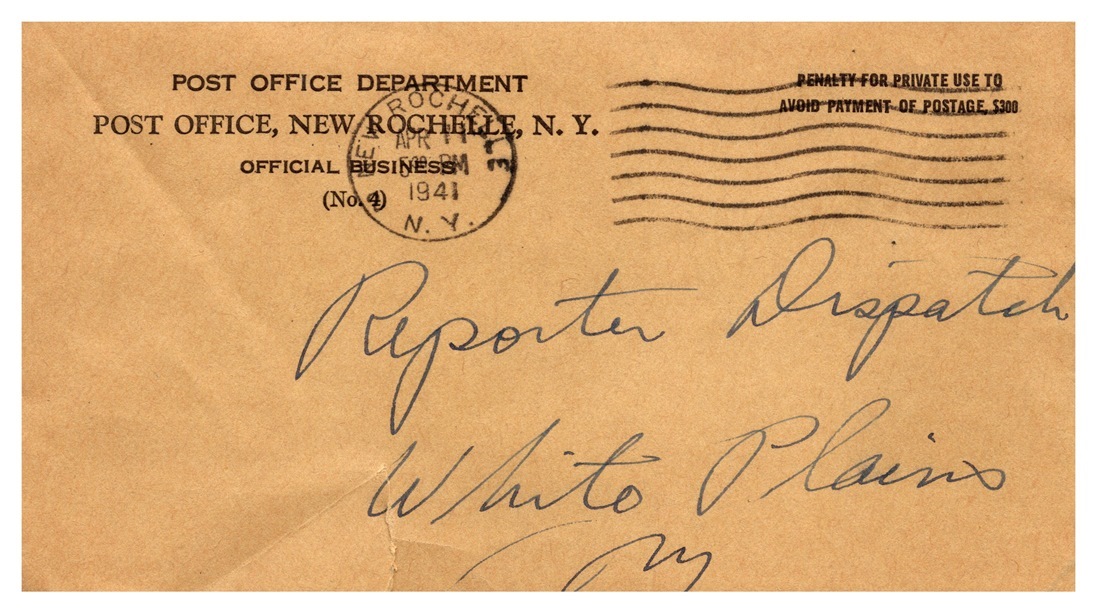 POST OFFICE DEPARTMENT
POST OFFICE, NEW ROCHELLE, N. Y.
OFFICIAL BUSINESS
(No. 4)
NEW ROCHELLE
APR 11
PM
1941
N. Y.
PENALTY FOR PRIVATE USE TO
AVOID PAYMENT OF POSTAGE, $300
Reporter Dispatch
White Plains